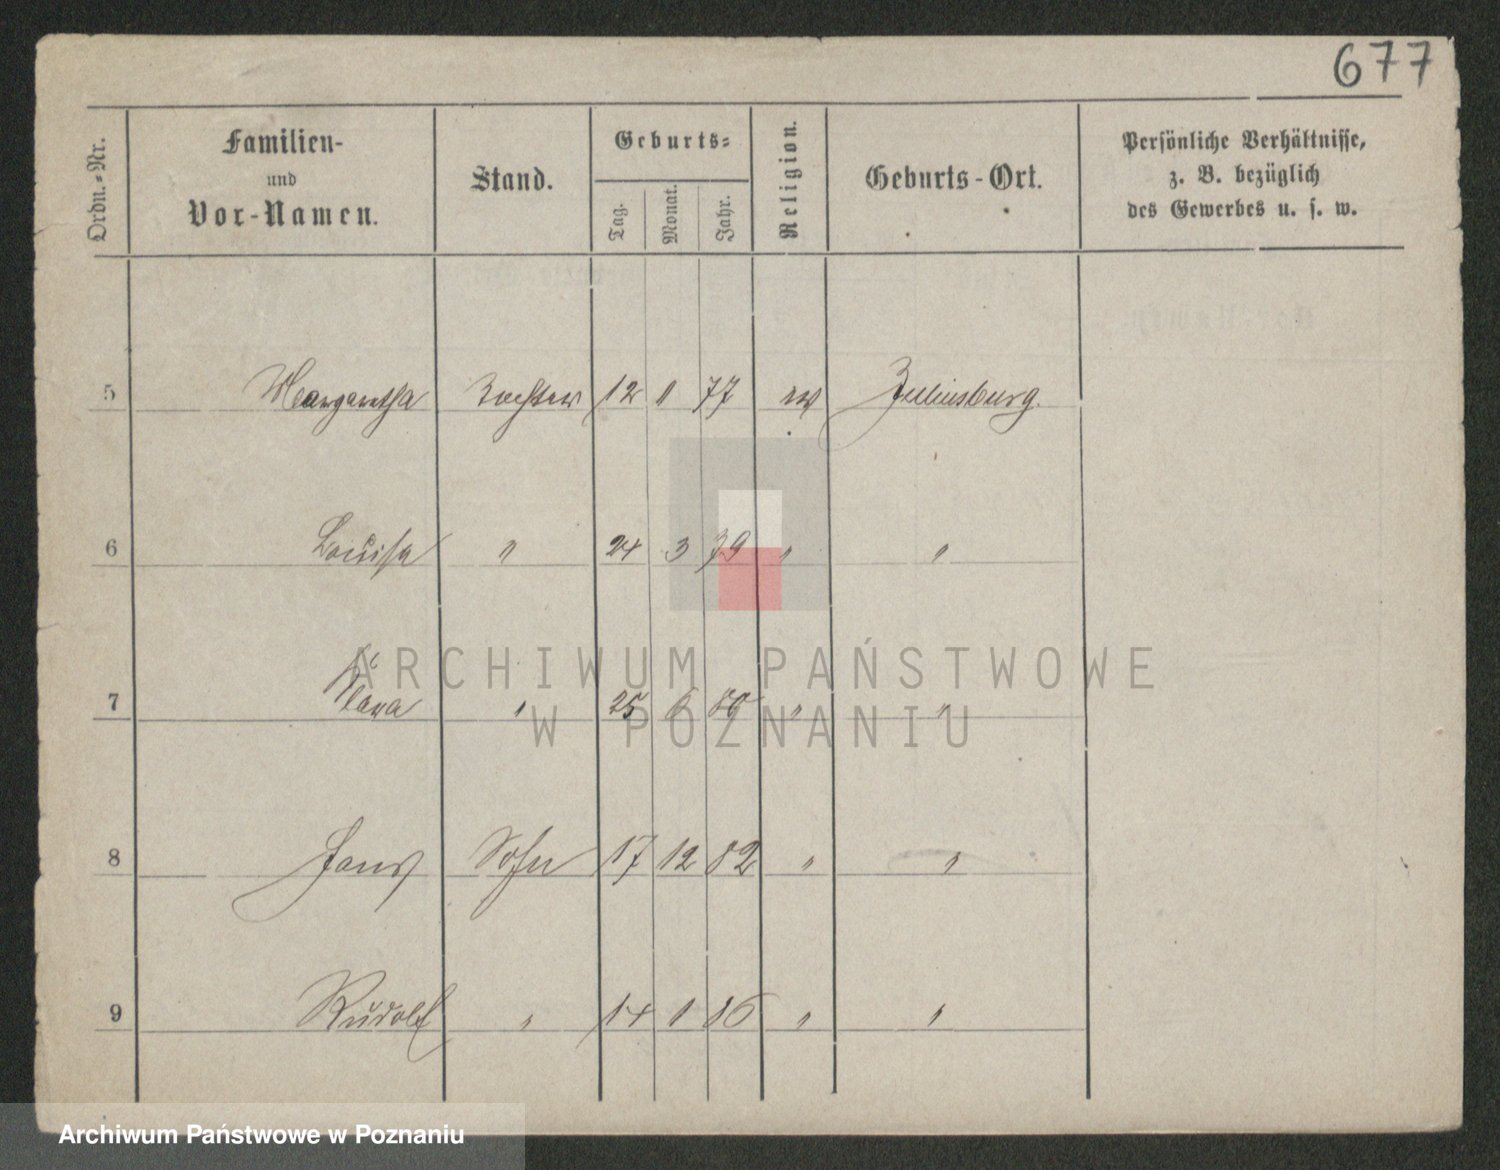 677
Ordn.-Nr.
Familien-
und
Vor-Namen.
Stand.
Geburts-
Tag.
Monat.
Jahr.
Religion.
Geburts-Ort.
Persönliche Verhältnisse,
z. B. bezüglich
des Gewerbes u. s. w.
5 Margaretha Tochter 12 1 77 ev Juliusburg.
6 Louisa " 24 3 79 " "
7 Klara " 25 6 80 " "
8 Hans Sohn 17 12 82 " "
9 Rudolf " 14 1 86 " "
ARCHIWUM PAŃSTWOWE
W POZNANIU
Archiwum Państwowe w Poznaniu